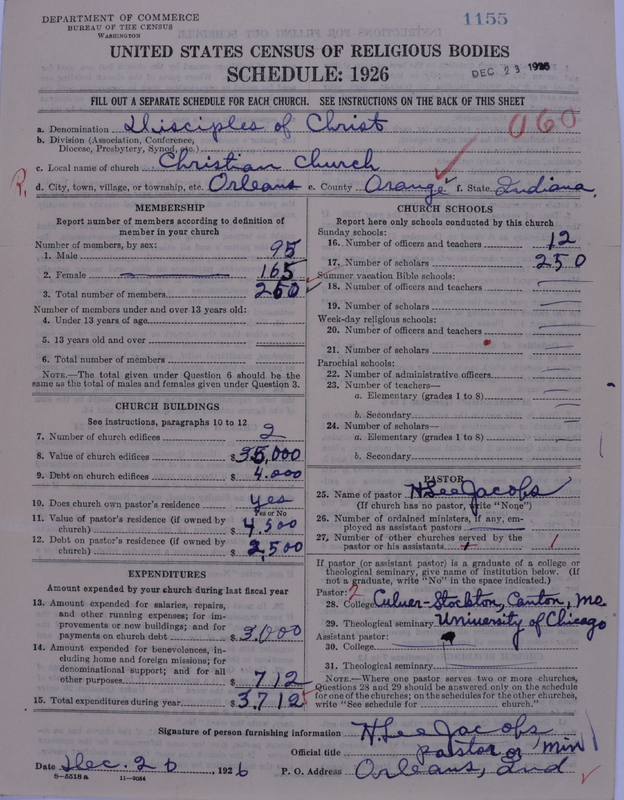 DEPARTMENT OF COMMERCE
BUREAU OF THE CENSUS
WASHINGTON
1155
UNITED STATES CENSUS OF RELIGIOUS BODIES
SCHEDULE: 1926
DEC 23 1926
FILL OUT A SEPARATE SCHEDULE FOR EACH CHURCH. SEE INSTRUCTIONS ON THE BACK OF THIS SHEET
060
a. Denomination Disciples of Christ
b. Division (Association, Conference, Diocese, Presbytery, Synod, etc.)
c. Local name of church Christian Church
R. d. City, town, village, or township, etc. Orleans e. County Orange f. State Indiana.
MEMBERSHIP
Report number of members according to definition of
member in your church
Number of members, by sex:
1. Male 95
2. Female 165
3. Total number of members 260
Number of members under and over 13 years old:
4. Under 13 years of age
5. 13 years old and over
6. Total number of members
NOTE.—The total given under Question 6 should be the
same as the total of males and females given under Question 3.
CHURCH BUILDINGS
See instructions, paragraphs 10 to 12
7. Number of church edifices 2
8. Value of church edifices $35,000
9. Debt on church edifices $4.000
10. Does church own pastor's residence yes
Yes or No
11. Value of pastor's residence (if owned by
church) $4,500
12. Debt on pastor's residence (if owned by
church) $2,500
EXPENDITURES
Amount expended by your church during last fiscal year
13. Amount expended for salaries, repairs,
and other running expenses; for im-
provements or new buildings; and for
payments on church debt $3,000
14. Amount expended for benevolences, in-
cluding home and foreign missions; for
denominational support; and for all
other purposes $712
15. Total expenditures during year $3,712
CHURCH SCHOOLS
Report here only schools conducted by this church
Sunday schools:
16. Number of officers and teachers 12
17. Number of scholars 250
Summer vacation Bible schools:
18. Number of officers and teachers
19. Number of scholars
Week-day religious schools:
20. Number of officers and teachers
21. Number of scholars
Parochial schools:
22. Number of administrative officers
23. Number of teachers—
a. Elementary (grades 1 to 8)
b. Secondary
24. Number of scholars—
a. Elementary (grades 1 to 8)
b. Secondary
PASTOR
25. Name of pastor H Lee Jacobs
(If church has no pastor, write "None")
26. Number of ordained ministers, if any, em-
ployed as assistant pastors
27. Number of other churches served by the
pastor or his assistants 1
If pastor (or assistant pastor) is a graduate of a college or
theological seminary, give name of institution below. (If
not a graduate, write "No" in the space indicated.)
Pastor: 2
28. College Culver-Stockton, Canton, Mo
29. Theological seminary University of Chicago
Assistant pastor:
30. College
31. Theological seminary
NOTE.—Where one pastor serves two or more churches,
Questions 28 and 29 should be answered only on the schedule
for one of the churches; on the schedules for the other churches,
write "See schedule for church."
Signature of person furnishing information H Lee Jacobs
Official title Pastor or Min
Date Dec. 20, 1926 P. O. Address Orleans, Ind
8-5518a 11-9084